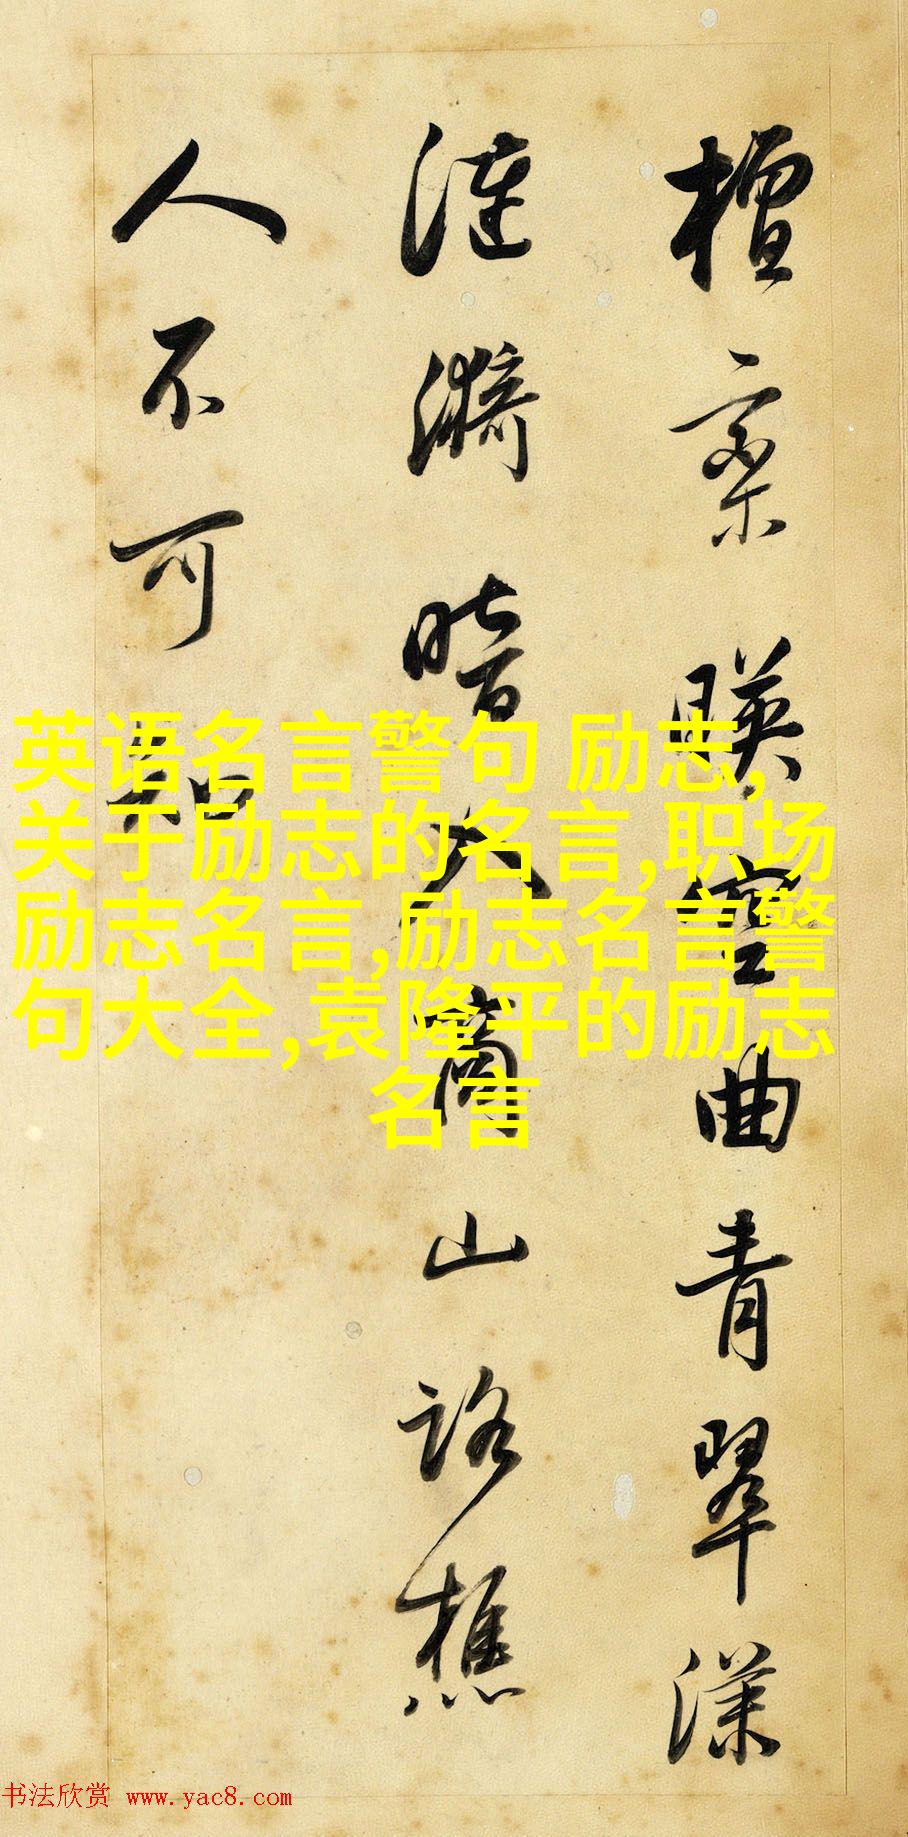 檀栾暎空曲青翠漾
漣漪暗入商山路樵
人不可知
英语名言警句 励志,
关于励志的名言,职场
励志名言,励志名言警
句大全,袁隆平的励志
名言
书法欣赏 www.yac8.com